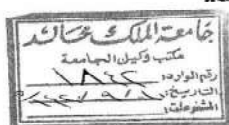 جامعة الملك خالد
مكتب وكيل الجامعة
رقم الوارد: ١٨٤٢
التاريخ:
المشفوعات: